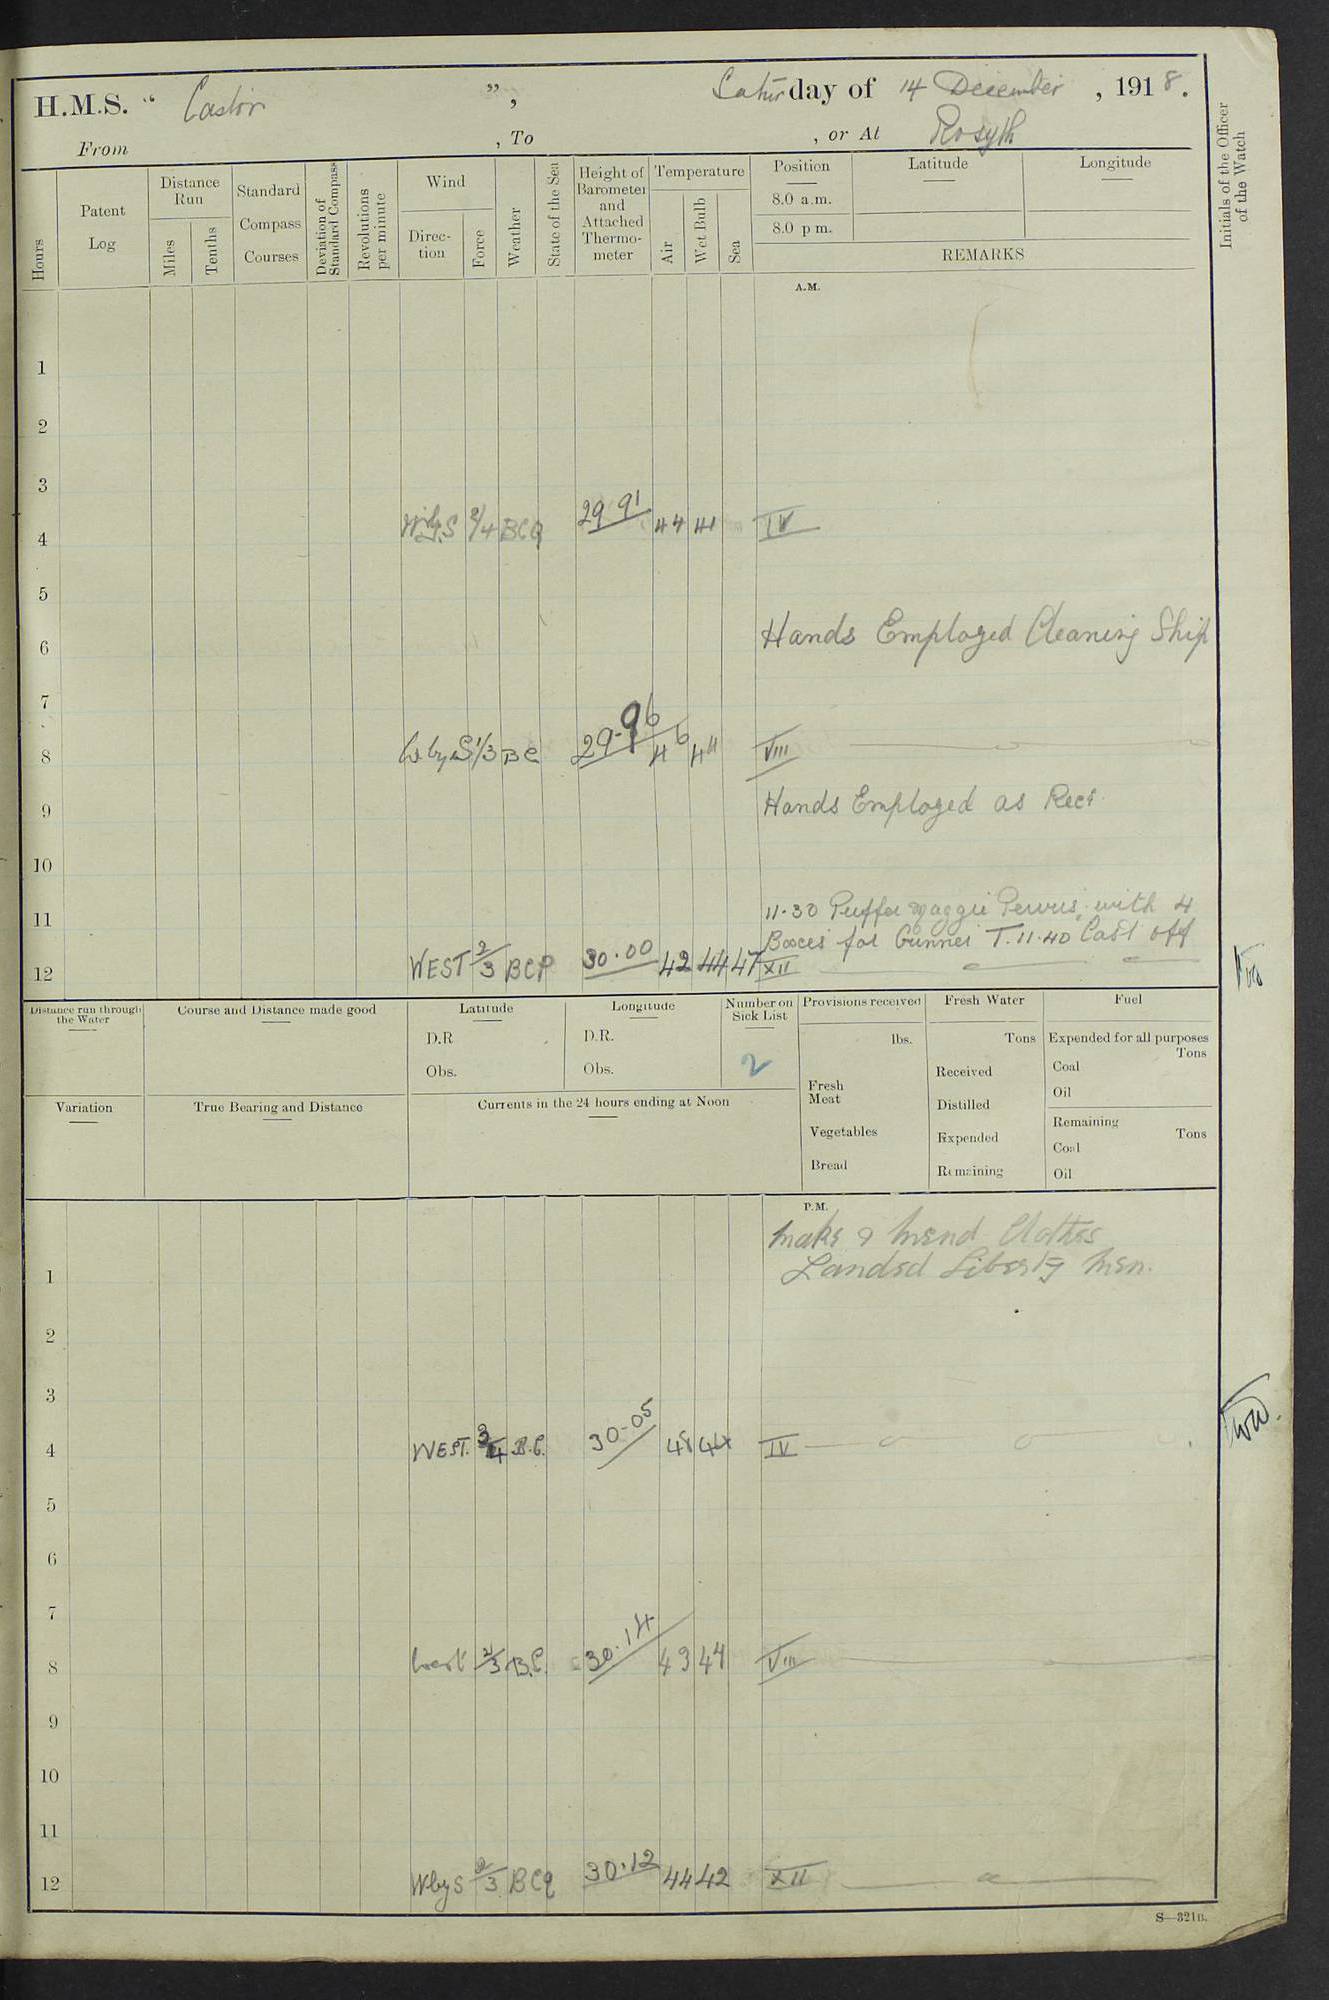 H.M.S. " Castor ", Saturday of 14 December, 1918.
From , To , or At Rosyth
Initials of the Officer of the Watch
Hours
Patent Log
Distance Run
Miles
Tenths
Standard Compass Courses
Deviation of Standard Compass
Revolutions per minute
Wind
Direction
Force
Weather
State of the Sea
Height of Barometer and Attached Thermometer
Temperature
Air
Wet Bulb
Sea
Position
8.0 a.m.
8.0 p m.
Latitude
Longitude
REMARKS
A.M.
1
2
3
4 W by S 2/4 BCQ 29 91 44 41 IV
5
6 Hands Employed Cleaning Ship
7
8 W by S 1/3 BC 29-96 46 44 VIII
9 Hands Employed as Req
10
11 11·30 Puffer Maggie with 4
Boxes for Gunner T. 11·40 Cast off
12 WEST 2/3 BCP 30·00 42 44 47 XII
Distance run through the Water
Course and Distance made good
Latitude
D.R
Obs.
Longitude
D.R.
Obs.
Number on Sick List
2
Provisions received
lbs.
Fresh Meat
Vegetables
Bread
Fresh Water
Tons
Received
Distilled
Expended
Remaining
Fuel
Expended for all purposes
Tons
Coal
Oil
Remaining
Tons
Coal
Oil
Variation
True Bearing and Distance
Currents in the 24 hours ending at Noon
P.M.
Make & Mend Clothes
1 Landed Liberty Men.
2
3
4 WEST. 3/4 B.C. 30-05 48 44 IV
5
6
7
8 West 2/3 B.C. 30·14 43 44 VIII
9
10
11
12 W by S 2/3 BCq 30·12 44 42 XII
S—321B.